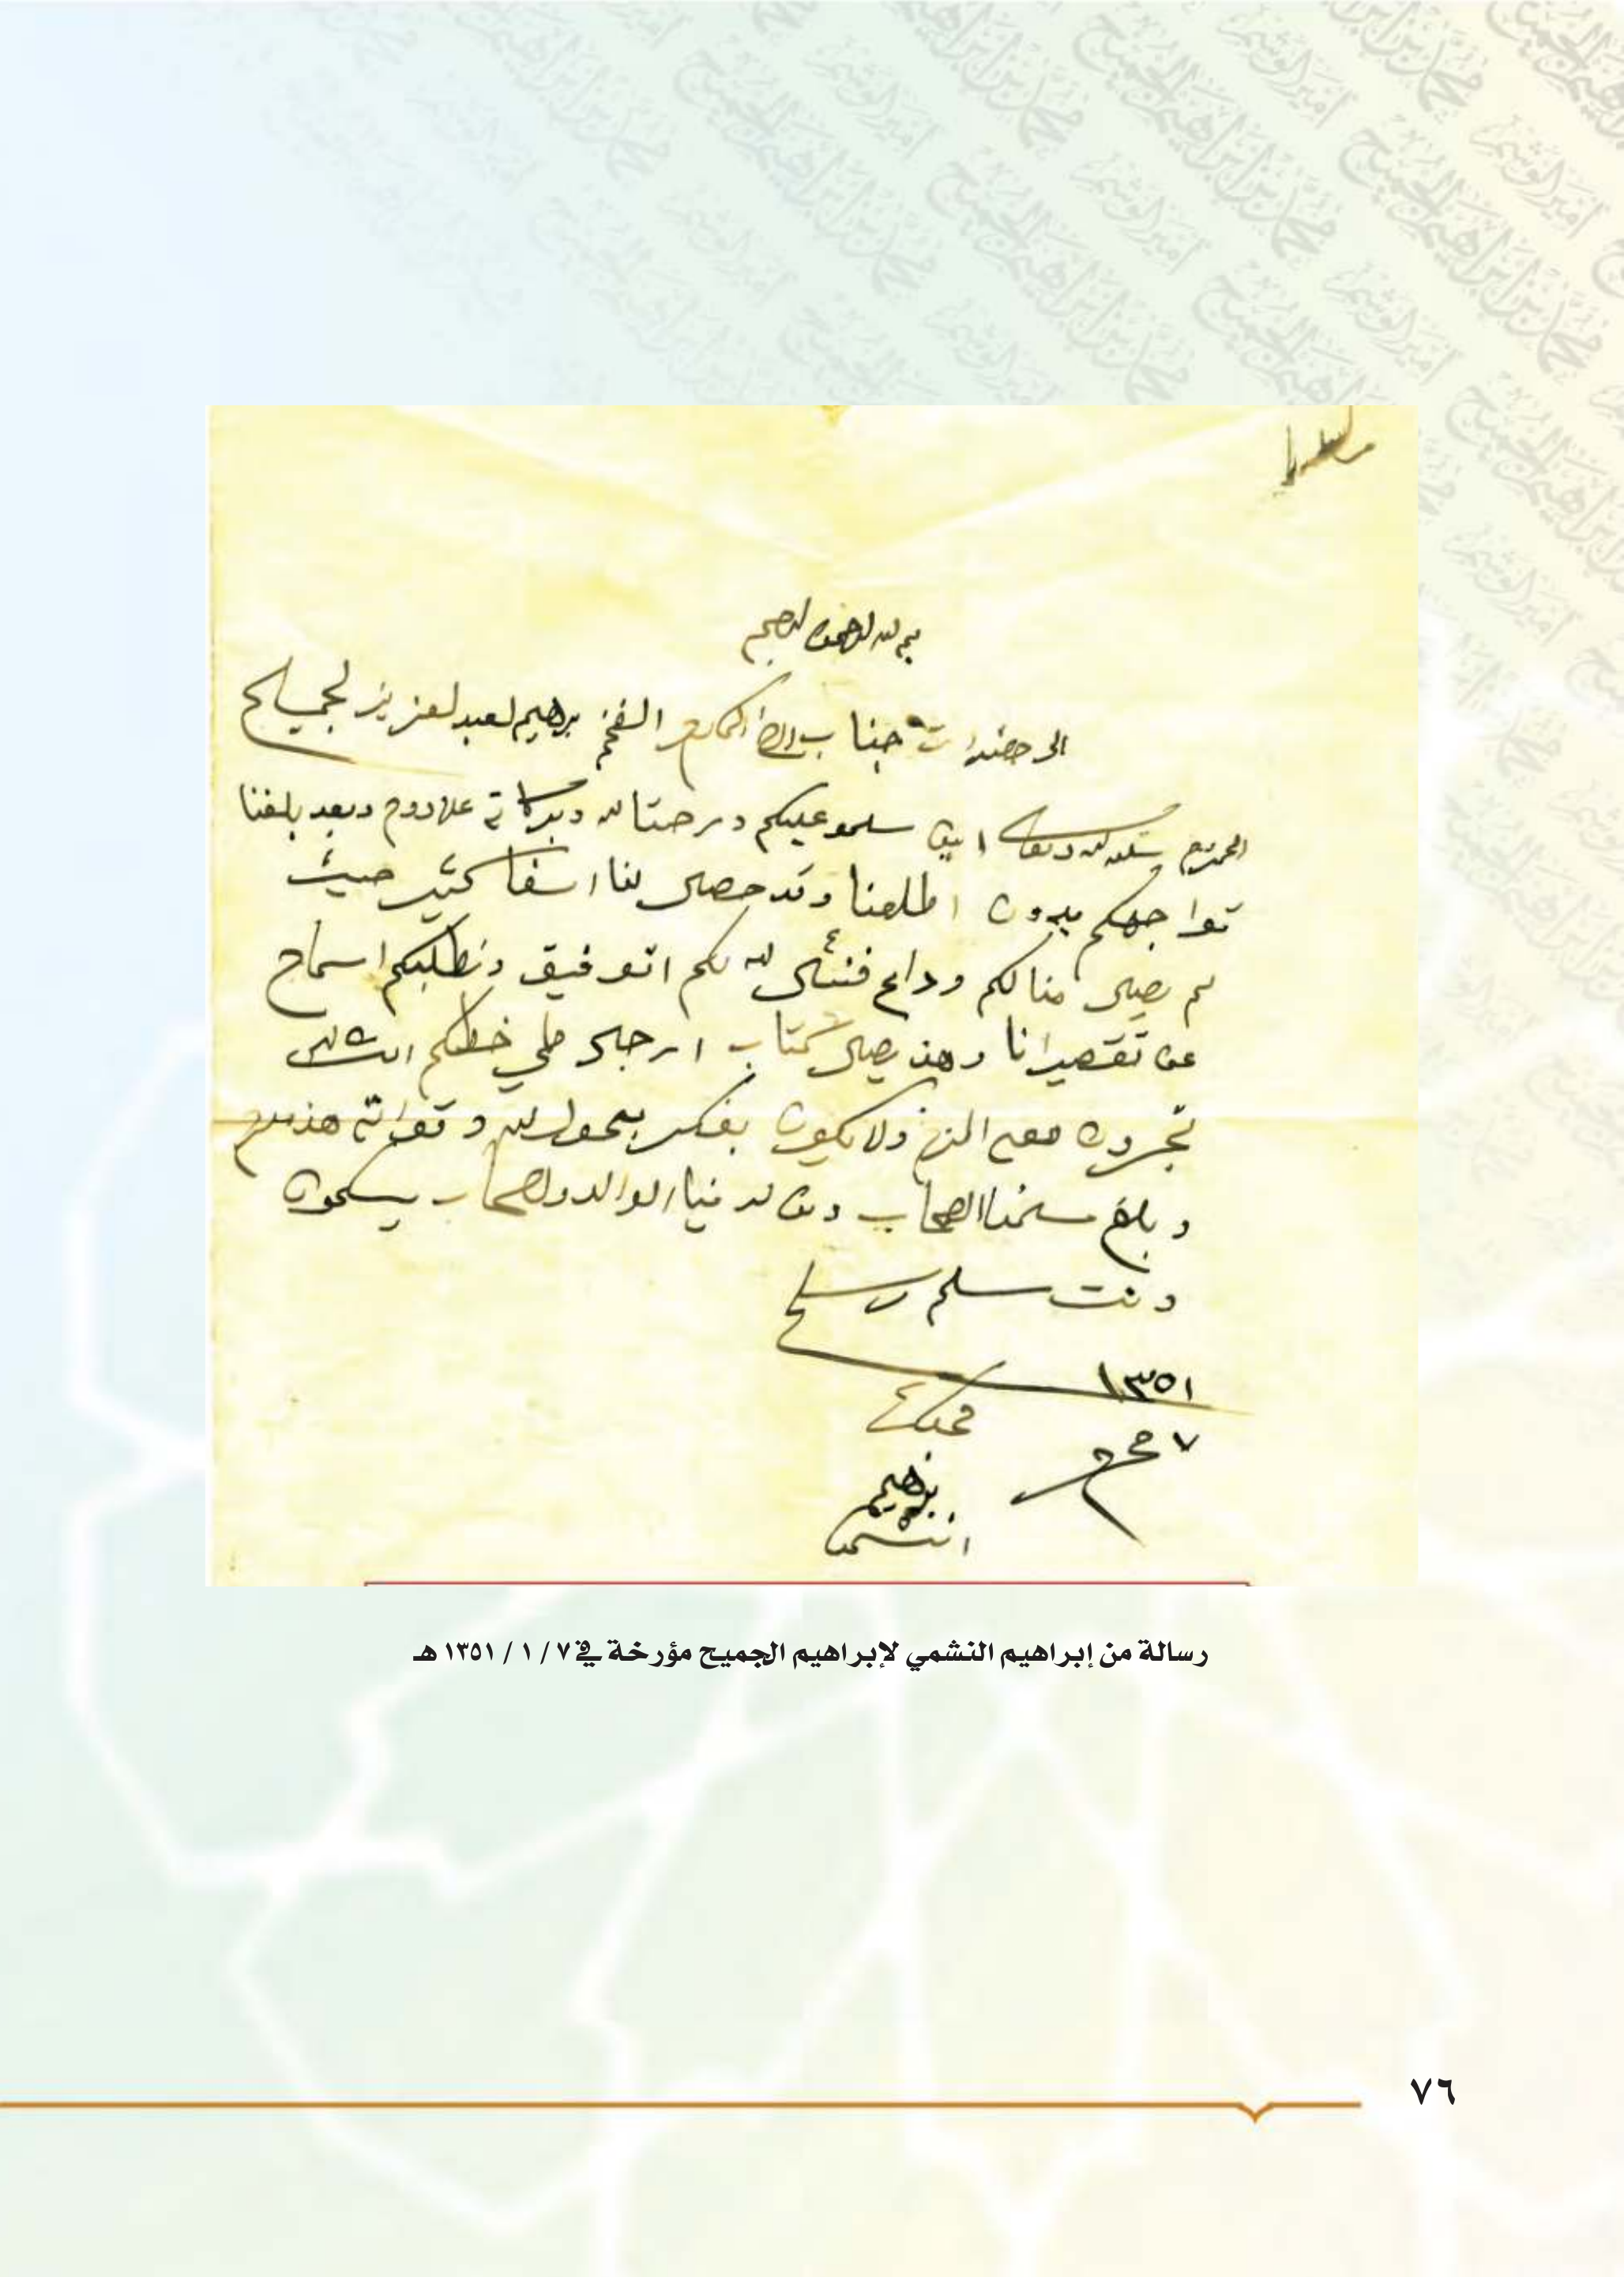 بسم الله الرحمن الرحيم
الى حضرات جناب الاخ المكرم الفخم برهيم لعبد لعزيز لجميح
المحترم سلمه الله وتعالى امين سلمو عليكم ورحمتا لله وبركاته على دوم وبعد بلغنا
تواجهكم بدون اطلعنا وقد حصل لنا اسفا كثير حيث
لم يصل منا لكم وداع فنسئل لله لكم اتوفيق ونطلبكم اسماح
عن تقصيرانا وهذ يصل كتاب ارجل خطكم انشالله
تجرون معه ولا يكون بفكر بحول لله وقواته هذ
وبلغ سلمنا الصحاب ومن لدنيا الوالد ولصحاب يسلمون
ونت سلم
١٣٥١
٧ محرم
محبك
برهيم
انشمي
رسالة من إبراهيم النشمي لإبراهيم الجميح مؤرخة في ٧ / ١ / ١٣٥١ هـ
٧٦